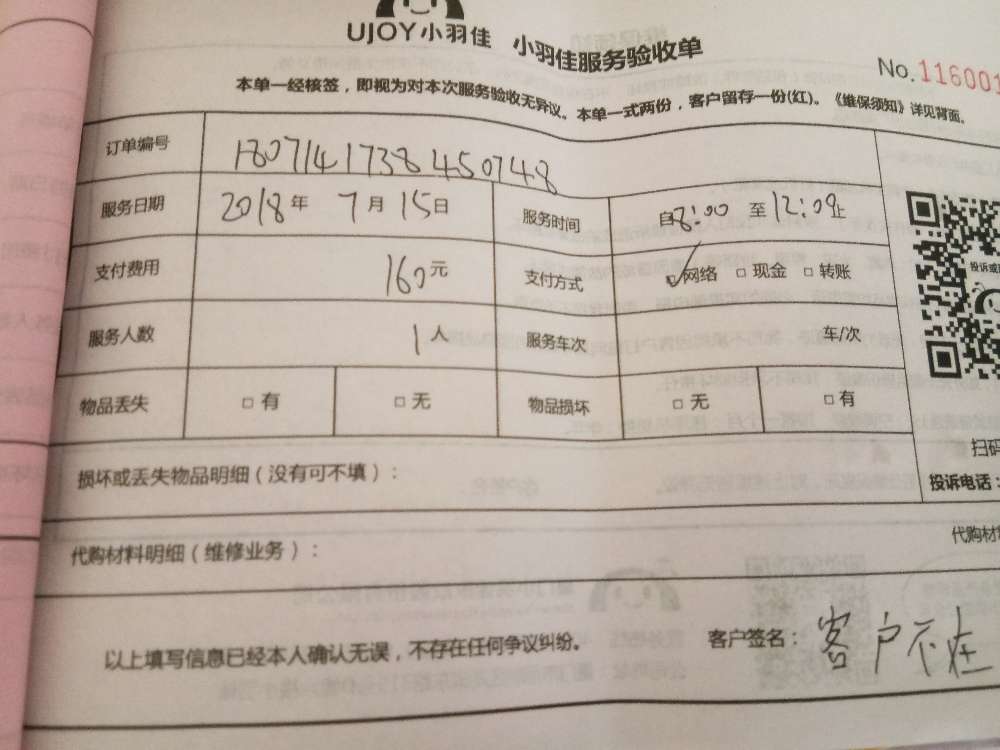 UJOY小羽佳 小羽佳服务验收单
No.116001
本单一经核签，即视为对本次服务验收无异议。本单一式两份，客户留存一份(红)。《维保须知》详见背面。
订单编号 1807141738450748
服务日期 2018年 7月 15日 服务时间 自8:00 至12:09止
支付费用 160元 支付方式 ☑网络 □现金 □转账
服务人数 1人 服务车次 车/次
物品丢失 □有 □无 物品损坏 □无 □有
投诉或
扫码
损坏或丢失物品明细（没有可不填）：
投诉电话：
代购材料明细（维修业务）：
代购材
以上填写信息已经本人确认无误，不存在任何争议纠纷。 客户签名：客户不在